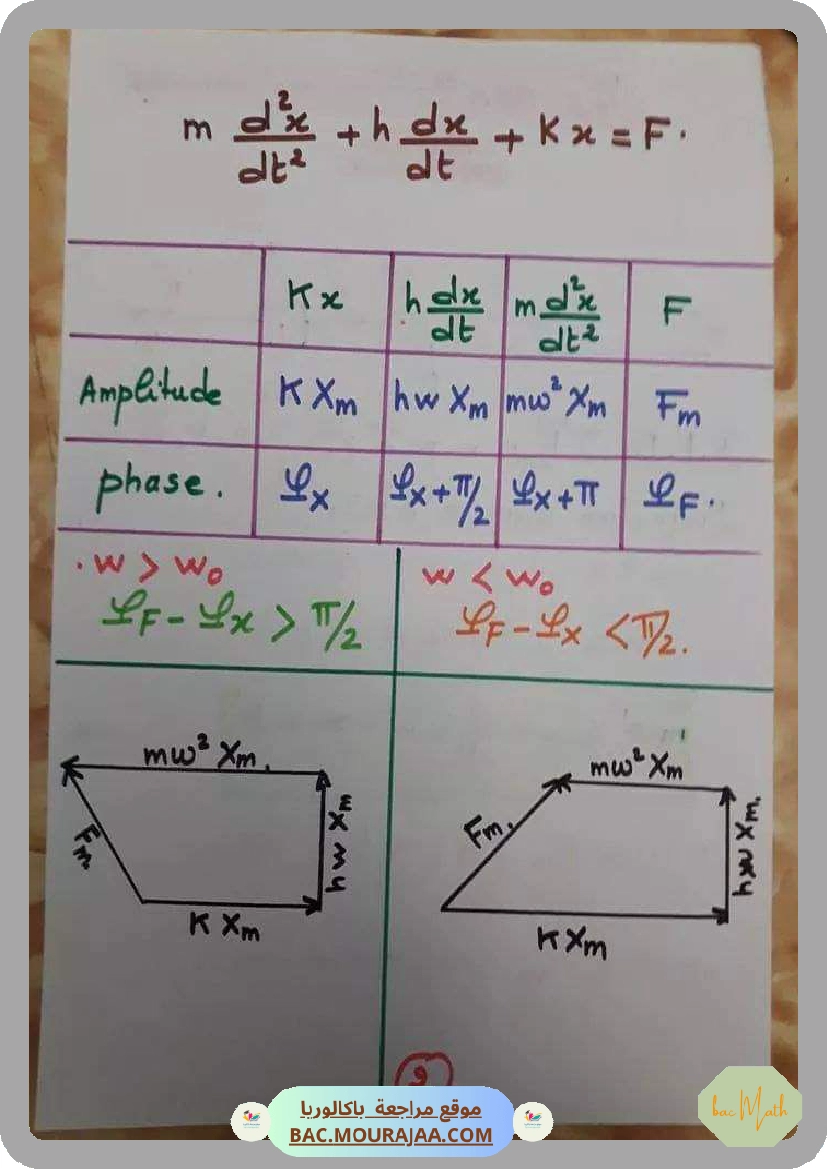 m d²x/dt² + h dx/dt + Kx = F.
Kx h dx/dt m d²x/dt² F
Amplitude K Xm hw Xm mw² Xm Fm
phase. φx φx + π/2 φx + π φF.
. w > w₀
φF - φx > π/2
w < w₀
φF - φx < π/2.
mw² Xm.
Fm
hw Xm
K Xm
mw² Xm
Fm.
hw Xm.
K Xm
9
موقع مراجعة باكالوريا
BAC.MOURAJAA.COM
bac Math